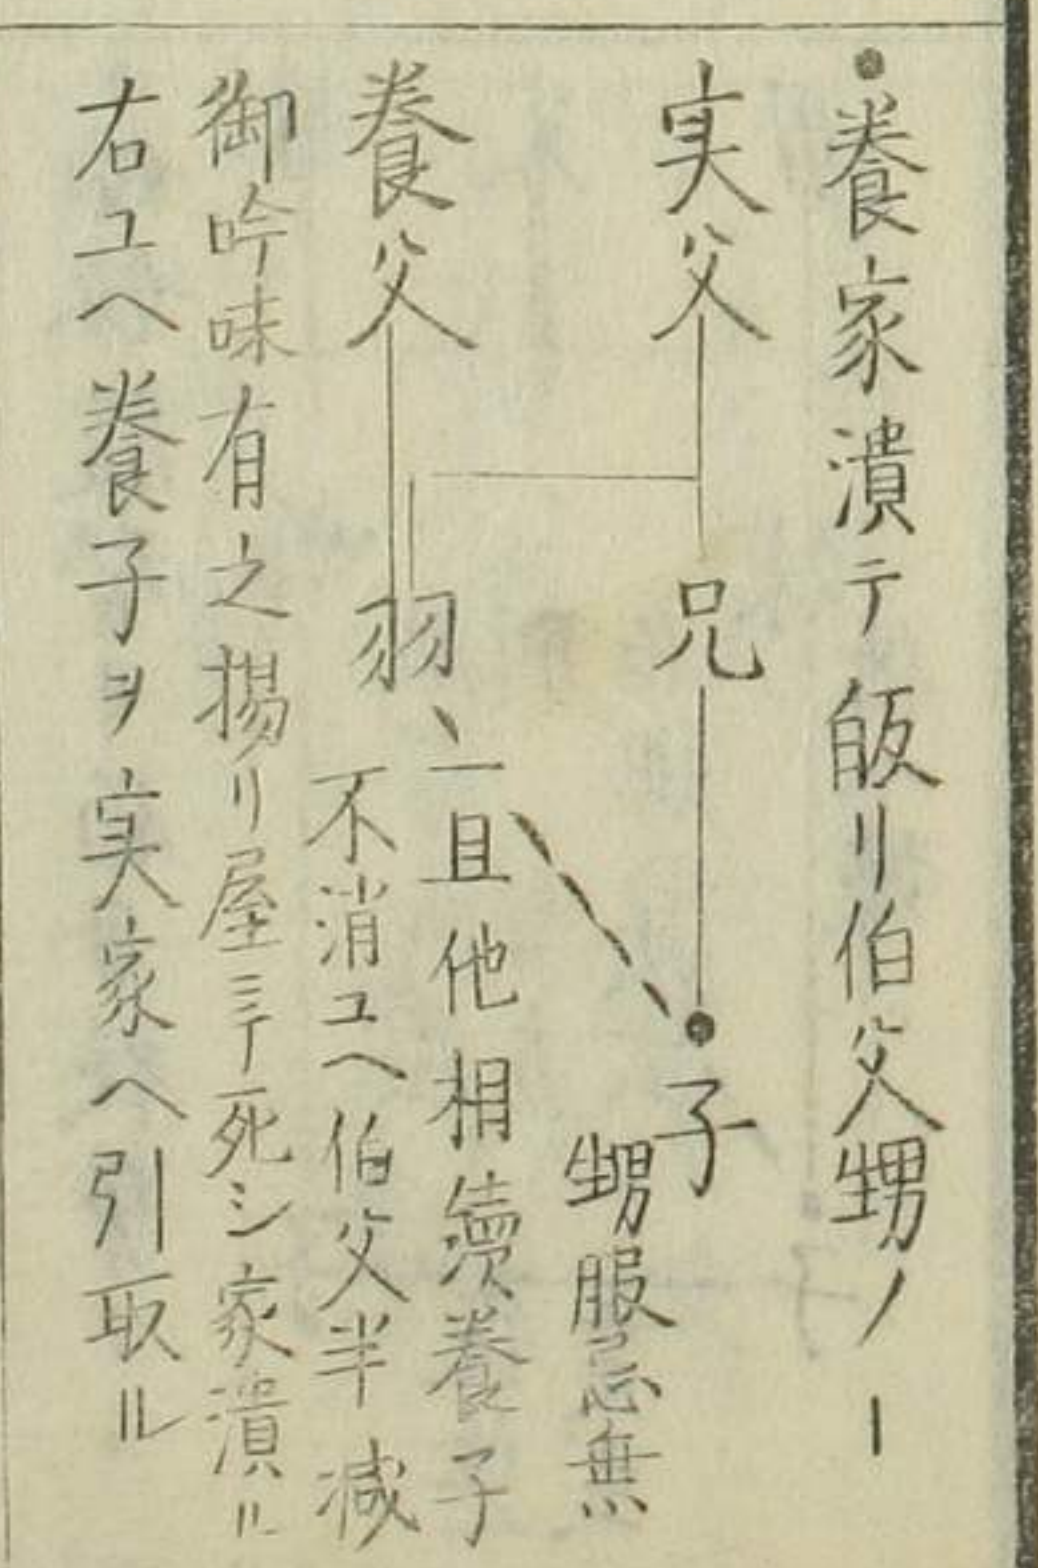 ●養家潰テ皈リ伯父甥ノ𠃊
実父
兄
子
甥服忌無
養父
羽
一旦他相続養子
不消ユヘ伯父半減
御吟味有之揚リ屋ニテ死シ家潰ル
右ユヘ養子ヲ実家ヘ引取ル